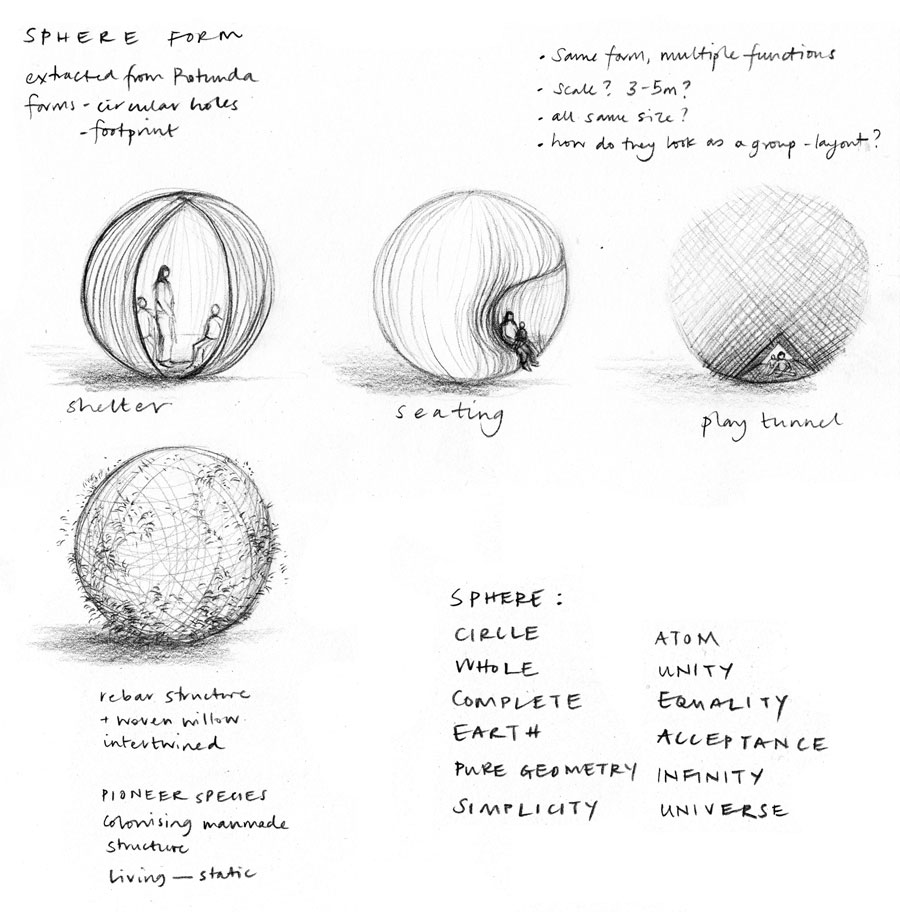 SPHERE FORM
extracted from Rotunda
forms - circular holes
- footprint
• Same form, multiple functions
• scale? 3-5m?
• all same size?
• how do they look as a group - layout?
shelter
seating
play tunnel
rebar structure
+ woven willow
intertwined
PIONEER SPECIES
colonising manmade
structure
living — static
SPHERE:
CIRCLE
WHOLE
COMPLETE
EARTH
PURE GEOMETRY
SIMPLICITY
ATOM
UNITY
EQUALITY
ACCEPTANCE
INFINITY
UNIVERSE